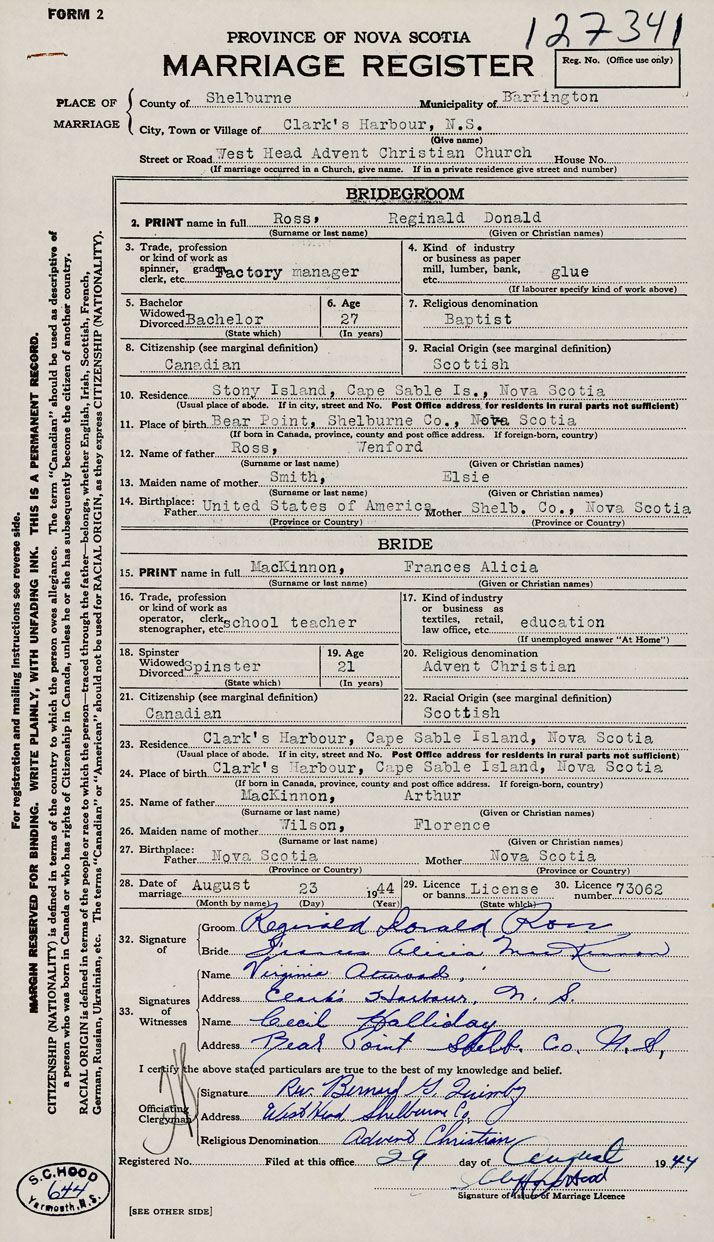 FORM 2
127341
PROVINCE OF NOVA SCOTIA
MARRIAGE REGISTER
Reg. No. (Office use only)
PLACE OF MARRIAGE
County of Shelburne Municipality of Barrington
City, Town or Village of Clark's Harbour, N.S.
(Give name)
Street or Road West Head Advent Christian Church House No.
(If marriage occurred in a Church, give name. If in a private residence give street and number)
BRIDEGROOM
2. PRINT name in full Ross, Reginald Donald
(Surname or last name) (Given or Christian names)
3. Trade, profession
or kind of work as
spinner, grader
clerk, etc. Factory manager
4. Kind of industry
or business as paper
mill, lumber, bank,
etc. glue
(If labourer specify kind of work above)
5. Bachelor
Widowed
Divorced Bachelor
(State which)
6. Age
27
(In years)
7. Religious denomination
Baptist
8. Citizenship (see marginal definition)
Canadian
9. Racial Origin (see marginal definition)
Scottish
10. Residence Stony Island, Cape Sable Is., Nova Scotia
(Usual place of abode. If in city, street and No. Post Office address for residents in rural parts not sufficient)
11. Place of birth Bear Point, Shelburne Co., Nova Scotia
(If born in Canada, province, county and post office address. If foreign-born, country)
12. Name of father Ross, Wenford
(Surname or last name) (Given or Christian names)
13. Maiden name of mother Smith, Elsie
(Surname or last name) (Given or Christian names)
14. Birthplace:
Father United States of America Mother Shelb. Co., Nova Scotia
(Province or Country) (Province or Country)
BRIDE
15. PRINT name in full MacKinnon, Frances Alicia
(Surname or last name) (Given or Christian names)
16. Trade, profession
or kind of work as
operator, clerk,
stenographer, etc. school teacher
17. Kind of industry
or business as
textiles, retail,
law office, etc. education
(If unemployed answer "At Home")
18. Spinster
Widowed
Divorced Spinster
(State which)
19. Age
21
(In years)
20. Religious denomination
Advent Christian
21. Citizenship (see marginal definition)
Canadian
22. Racial Origin (see marginal definition)
Scottish
23. Residence Clark's Harbour, Cape Sable Island, Nova Scotia
(Usual place of abode. If in city, street and No. Post Office address for residents in rural parts not sufficient)
24. Place of birth Clark's Harbour, Cape Sable Island, Nova Scotia
(If born in Canada, province, county and post office address. If foreign-born, country)
25. Name of father MacKinnon, Arthur
(Surname or last name) (Given or Christian names)
26. Maiden name of mother Wilson, Florence
(Surname or last name) (Given or Christian names)
27. Birthplace:
Father Nova Scotia Mother Nova Scotia
(Province or Country) (Province or Country)
28. Date of
marriage August 23 1944
(Month by name) (Day) (Year)
29. Licence
or banns License
(State which)
30. Licence
number 73062
32. Signature of
Groom Reginald Donald Ross
Bride Frances Alicia MacKinnon
33. Signatures of Witnesses
Name Virginia Atwood,
Address Clark's Harbour, N. S.
Name Cecil Halliday
Address Bear Point Shelb. Co. N.S,
I certify the above stated particulars are true to the best of my knowledge and belief.
Officiating Clergyman
Signature Rev. Bernard G. Quimby
Address West Head Shelburne Co,
Religious Denomination Advent Christian
Registered No. Filed at this office 29 day of August 1944
Signature of Issuer of Marriage Licence
S.C. HOOD
644
Yarmouth, N.S.
[SEE OTHER SIDE]
For registration and mailing instructions see reverse side.
MARGIN RESERVED FOR BINDING. WRITE PLAINLY, WITH UNFADING INK. THIS IS A PERMANENT RECORD.
CITIZENSHIP (NATIONALITY) is defined in terms of the country to which the person owes allegiance. The term "Canadian" should be used as descriptive of
a person who was born in Canada or who has rights of Citizenship in Canada, unless he or she has subsequently become the citizen of another country.
RACIAL ORIGIN is defined in terms of the people or race to which the person—traced through the father—belongs, whether English, Irish, Scottish, French,
German, Russian, Ukrainian, etc. The terms "Canadian" or "American" should not be used for RACIAL ORIGIN, as they express CITIZENSHIP (NATIONALITY).